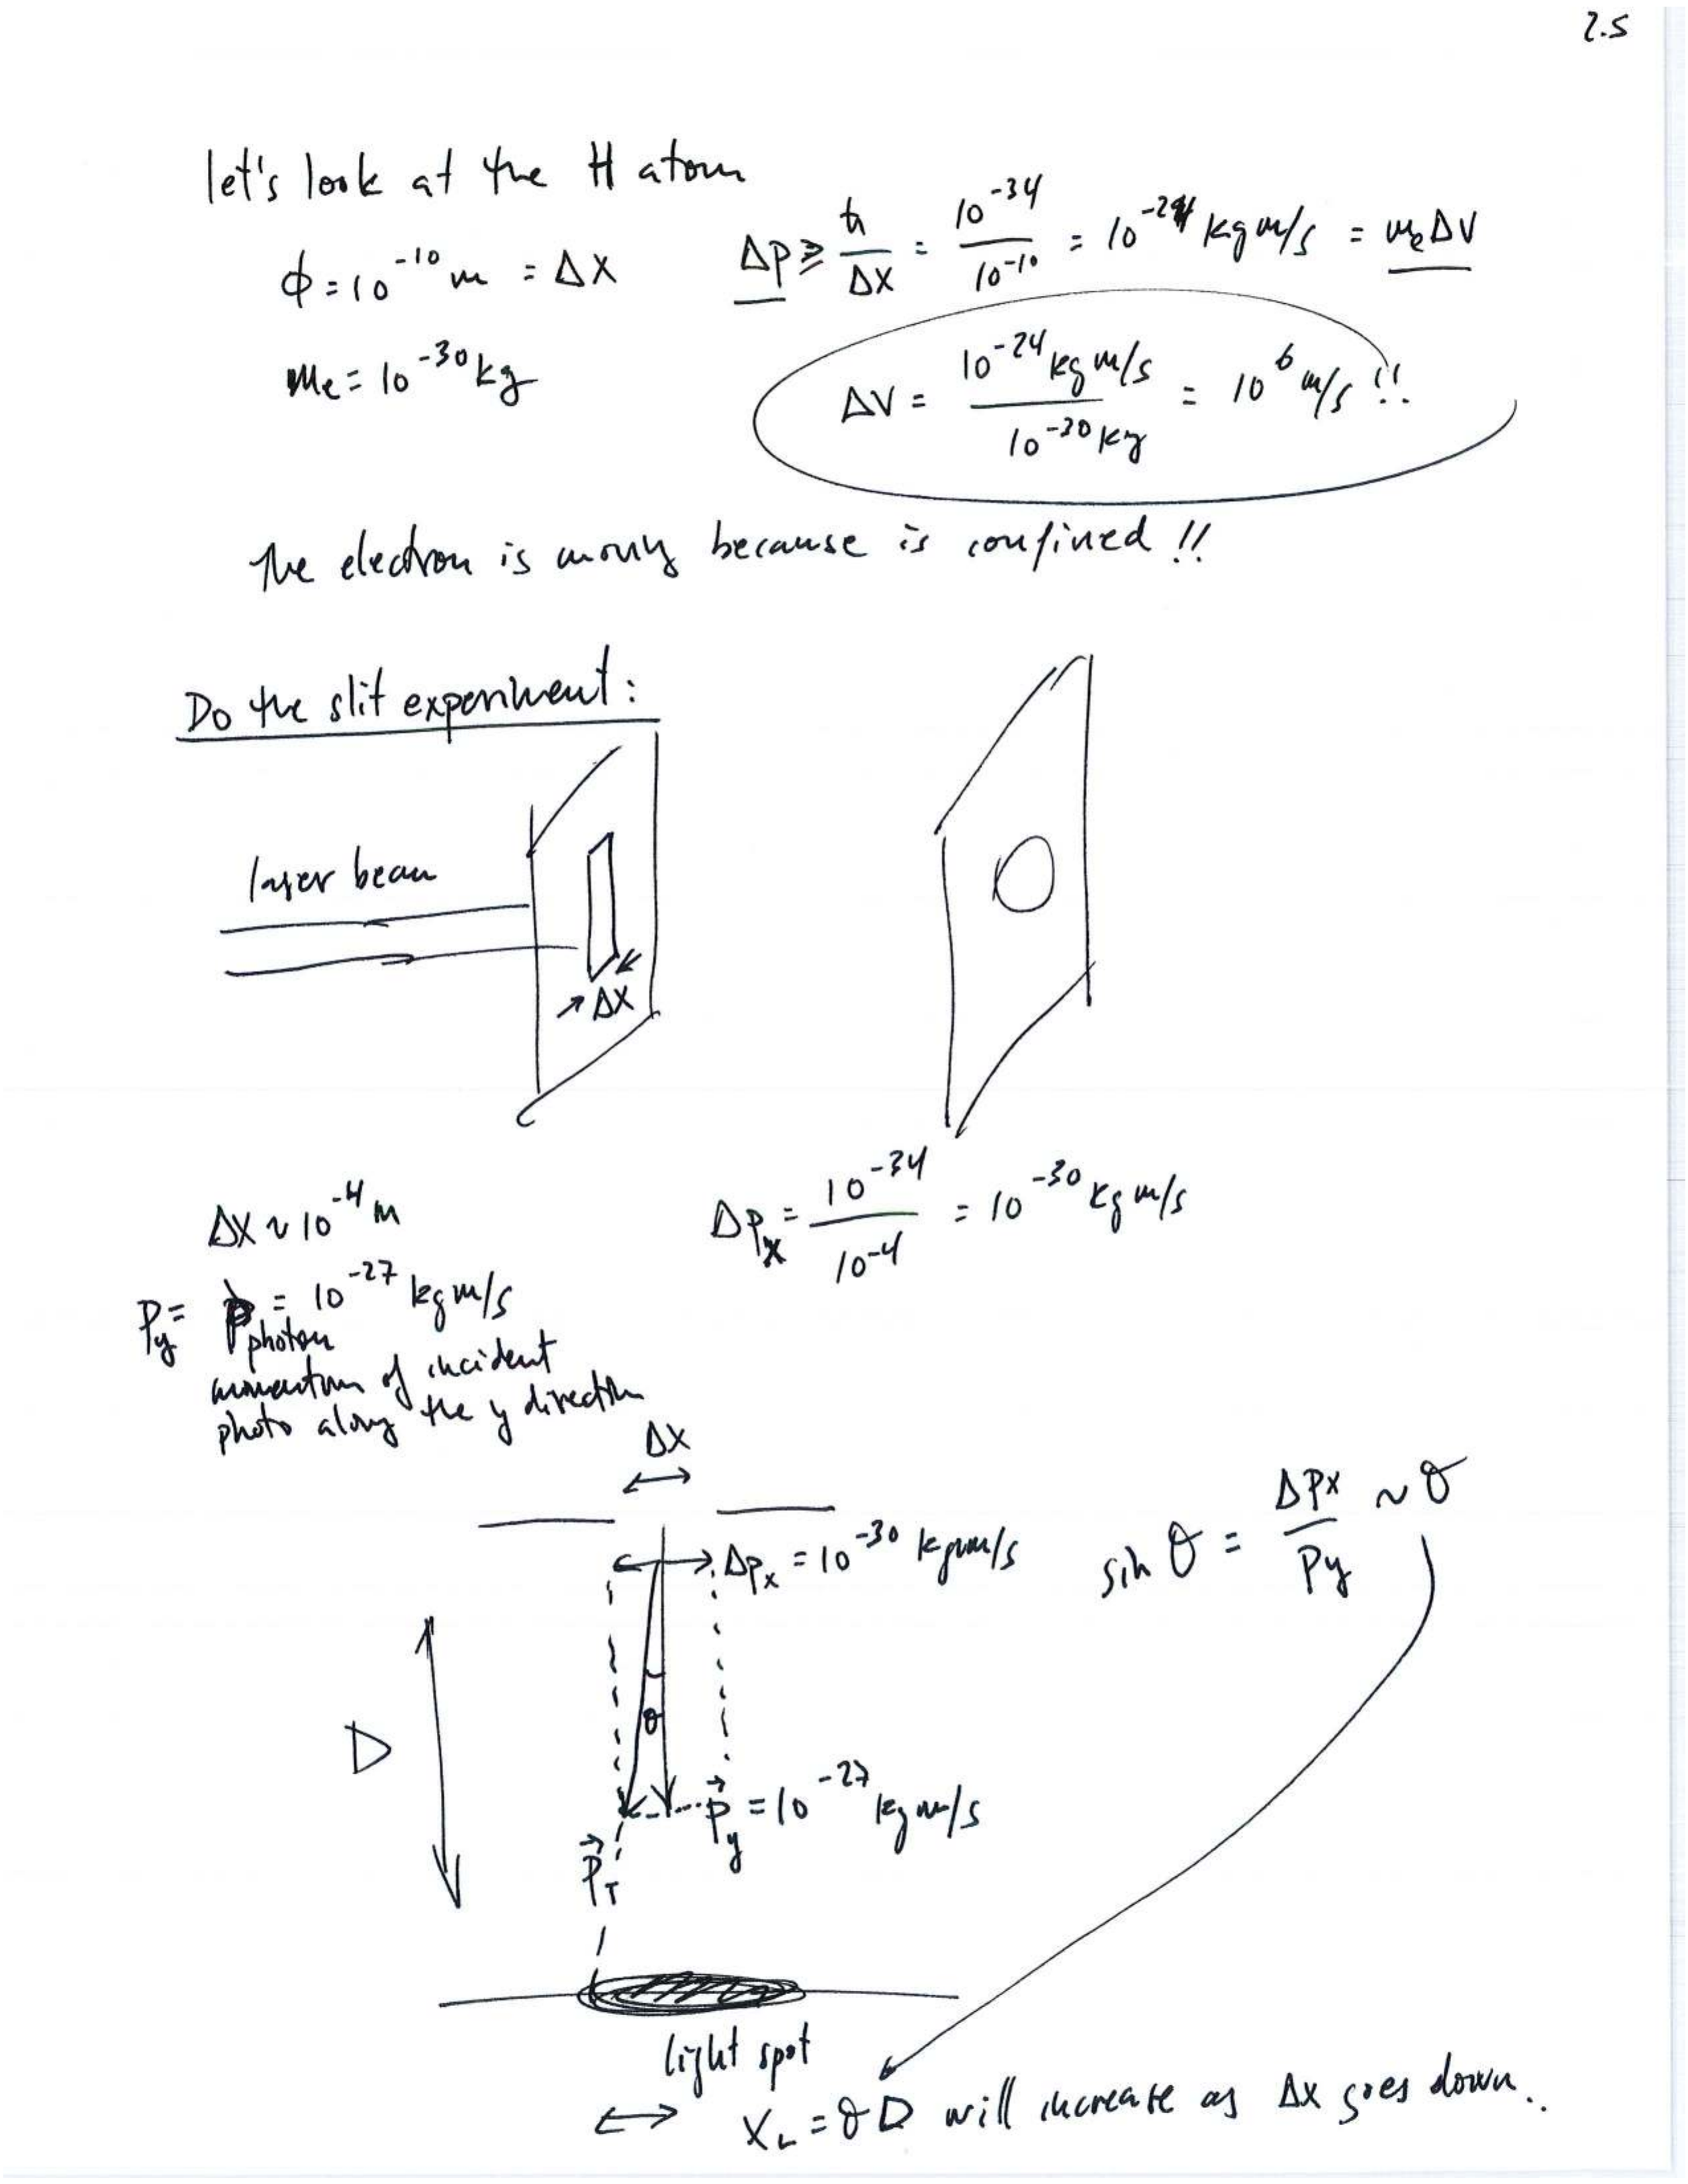 2.5
let's look at the H atom
ϕ = 10⁻¹⁰ m = Δx
Δp ≥ ħ/Δx = 10⁻³⁴/10⁻¹⁰ = 10⁻²⁴ kg m/s = meΔV
me = 10⁻³⁰ kg
ΔV = 10⁻²⁴ kg m/s / 10⁻³⁰ kg = 10⁶ m/s !!
The electron is moving because is confined !!
Do the slit experiment :
laser beam
Δx
Δx ~ 10⁻⁴ m
Δpx = 10⁻³⁴/10⁻⁴ = 10⁻³⁰ kg m/s
Py = Pphoton = 10⁻²⁷ kg m/s
momentum of incident
photo along the y direction
Δx
Δpx = 10⁻³⁰ kg m/s
sin θ = Δpx/Py ~ θ
θ
D
p⃗y = 10⁻²⁷ kg m/s
P⃗T
light spot
XL = θD will increase as Δx goes down..